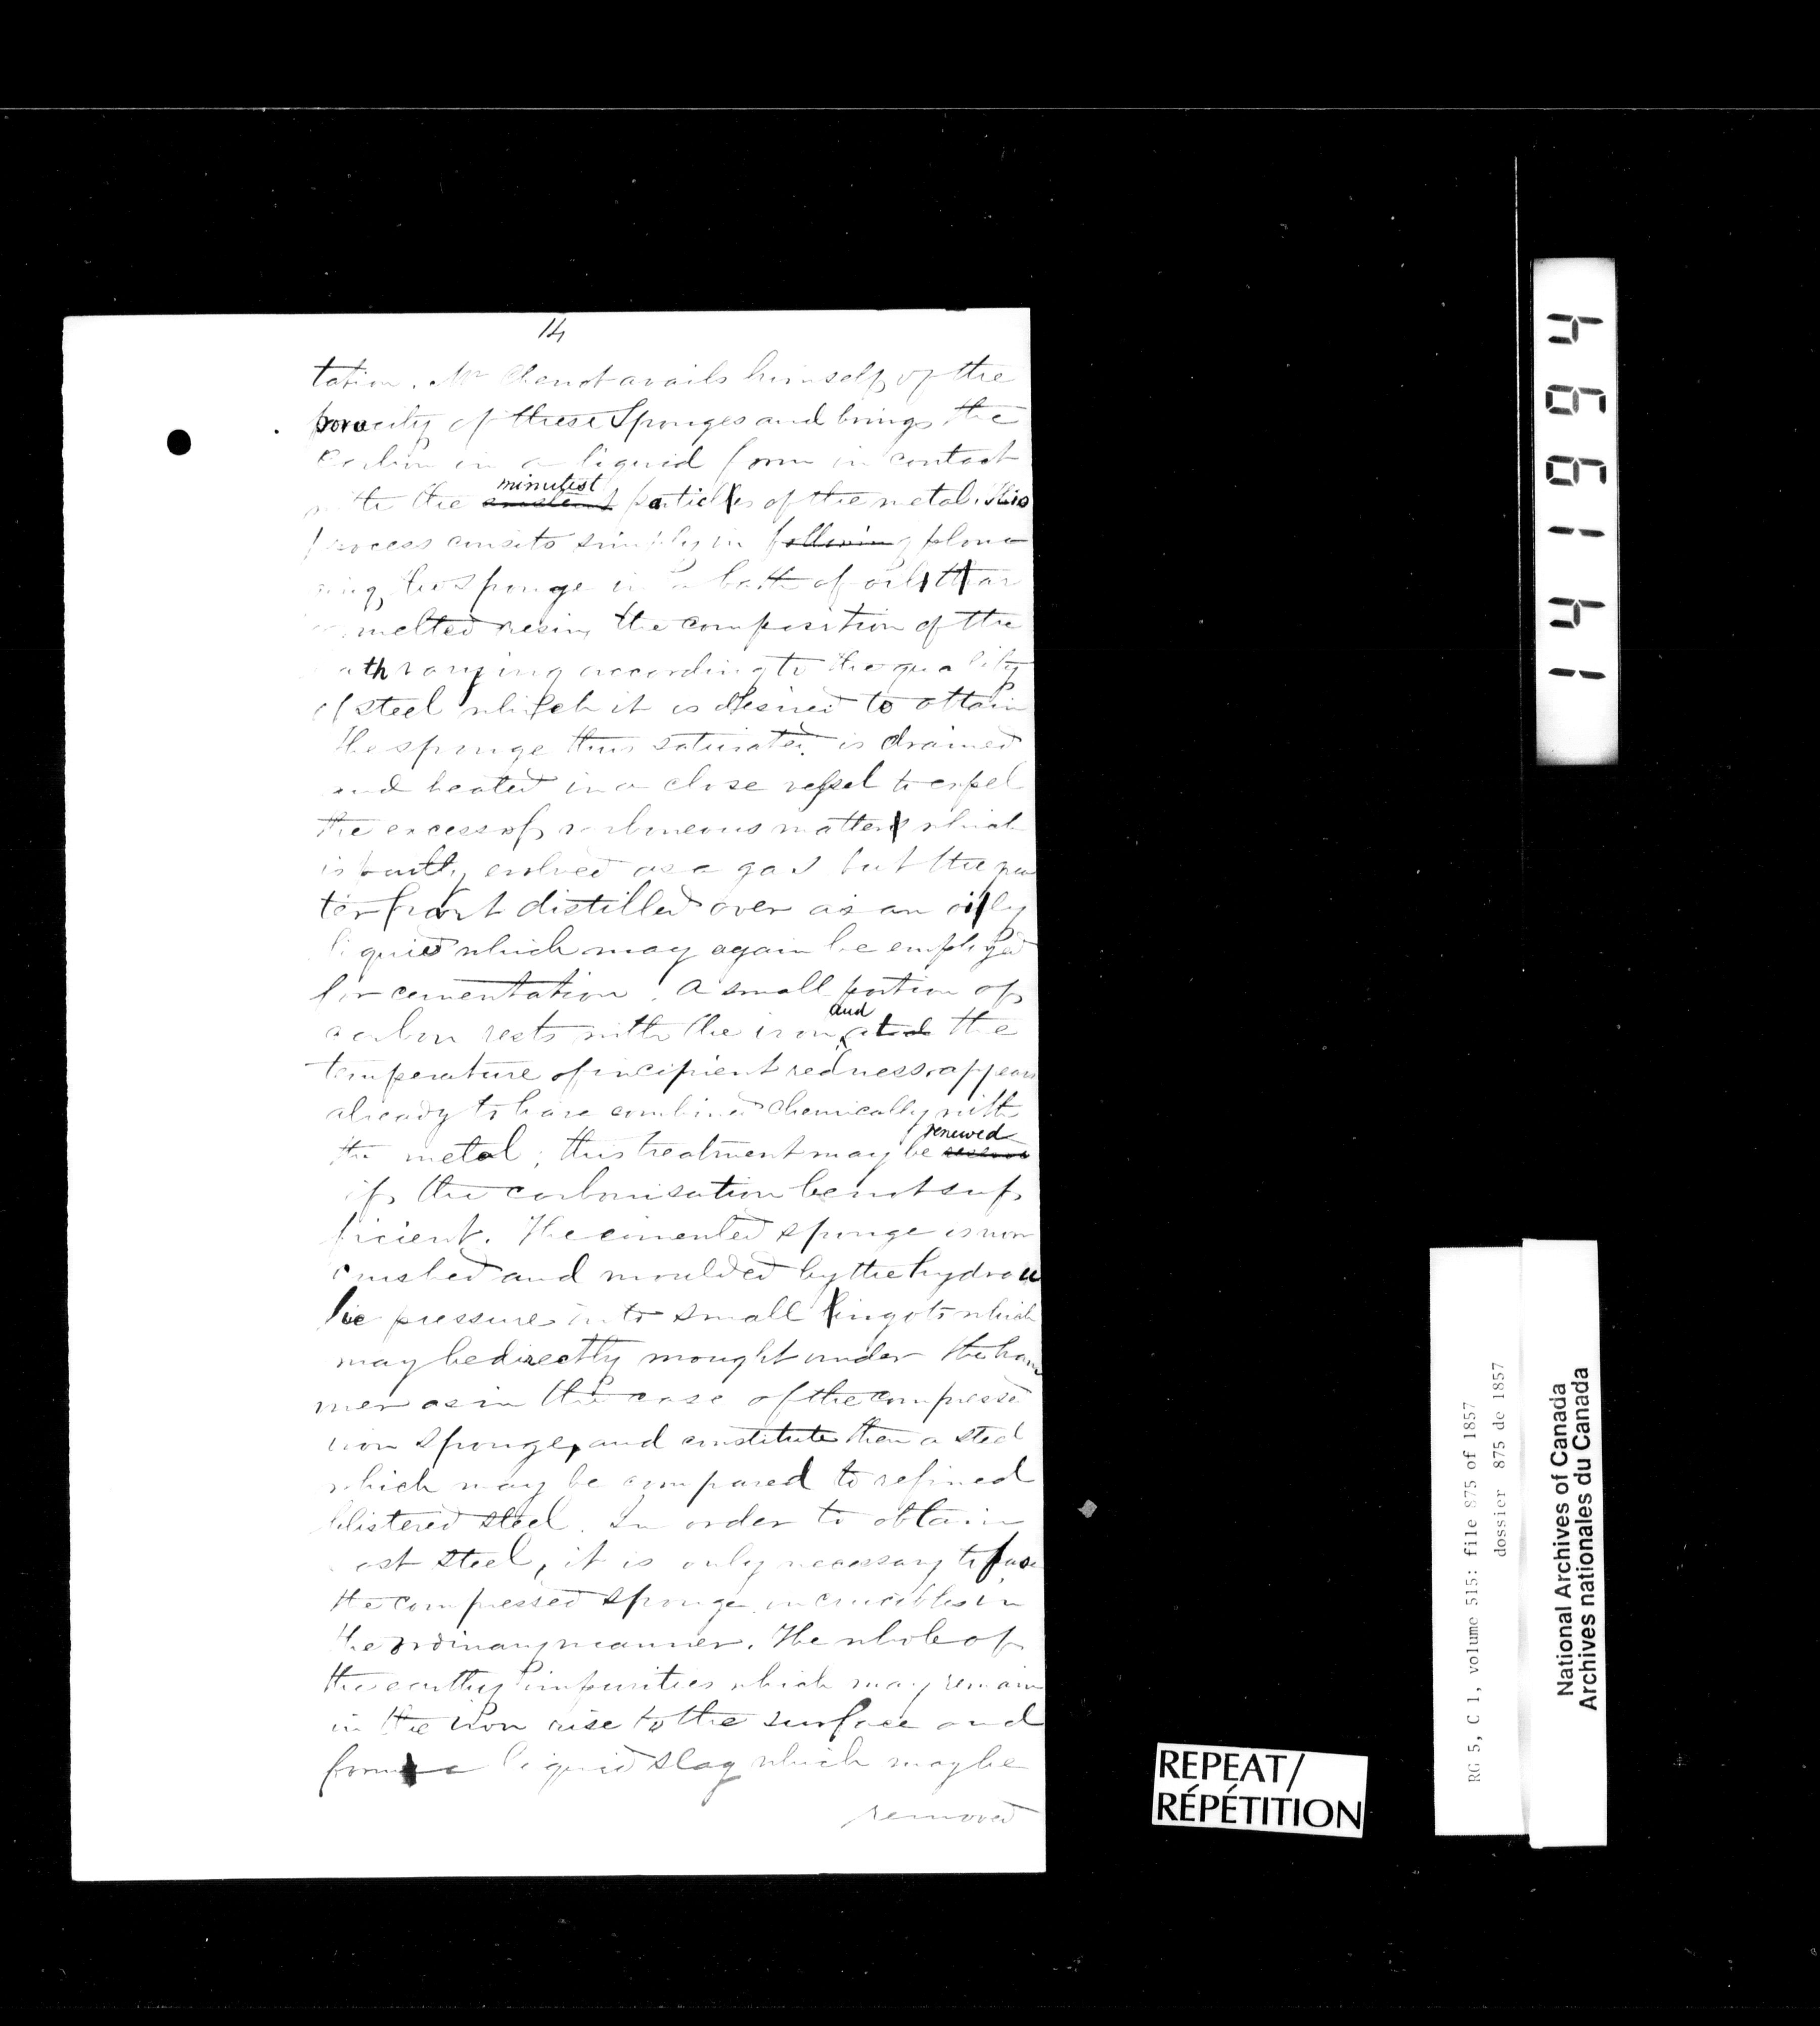 14
tation. Mr Chenot avails himself of the
porocity of these Sponges and brings the
Carbon in a liquid form in contact
minutest
with the smallest particles of the metal. This
process consists simply in following plung
ing the sponge in a bath of oil, tar
or melted resin, the composition of the
bath varying according to the quality
of steel which it is desired to obtain
the sponge thus saturated is drained
and heated in a close vessel to expel
the excess of carboneous matter which
is partly evolved as a gas but the grea
ter part distilled over as an oily
liquid which may again be employed
for cementation. A small portion of
and
carbon rests with the iron at the
temperature of incipient redness appears
already to have combined chemically with
renewed
the metal; this treatment may be
if the carbonisation be not suf
ficient. The cimented sponge is now
crushed and moulded by the hydrau
lic pressure into small lingots which
may be directly wrought under the ham
mer as in the case of the compressed
iron Sponge, and constitute then a steel
which may be compared to refined
blistered steel. In order to obtain
cast steel, it is only necessary to fuse
the compressed sponge in crucibles in
the ordinary manner. The whole of
the earthy impurities which may remain
in the iron rise to the surface and
form a liquid slag which may be
removed
146194
RG 5, C 1, volume 515: file 875 of 1857
dossier 875 de 1857
National Archives of Canada
Archives nationales du Canada
REPEAT/
RÉPÉTITION